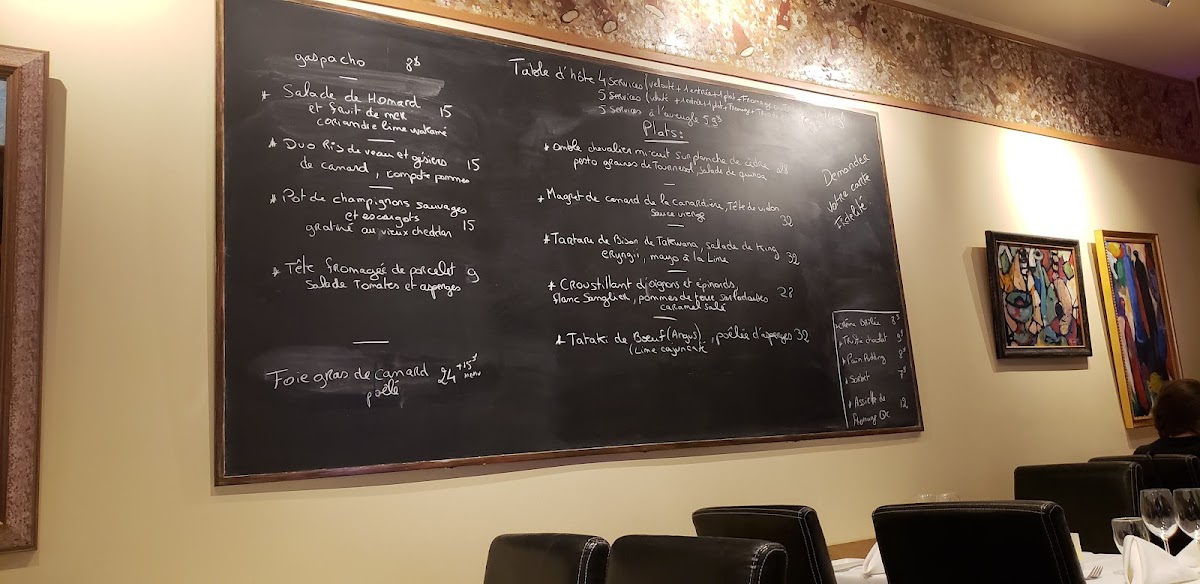 gaspacho 8$
* Salade de Homard 15
et fruit de mer
coriandre lime wakamé
* Duo Ris de veau et gésiers 15
de canard, compote pommes
* Pot de champignons sauvages
et escargots 15
gratiné au vieux cheddar
* Tête fromagée de porcelet 9
Salade Tomates et asperges
Foie gras de canard 24 +15$ menu
poêlé
Table d'hôte 4 services (velouté + 1 entrée + 1 plat + Fromage
5 services
5 services à l'aveugle 59$
Plats:
* omble chevalier mi-cuit sur planche de cèdre 28
pesto graines de Tournesol, salade de quinoa
* Magret de canard de la Canardière, Tête de violon
sauce vierge 32
* Tartare de Bison de Takwana, salade de King
eryngii, mayo à la Lime 32
* Croustillant d'oignons et épinards, 28
flanc Sanglier, pommes de terre Sarladaises
caramel salé
* Tataki de Boeuf (Angus), poêlée d'asperges 32
Demander
votre carte
Fidélité.
* Crème Brûlée 8$
* Truffe chocolat 9$
* Pain Pudding 8$
* Sorbet 7$
* Assiette de
fromage Qc 12